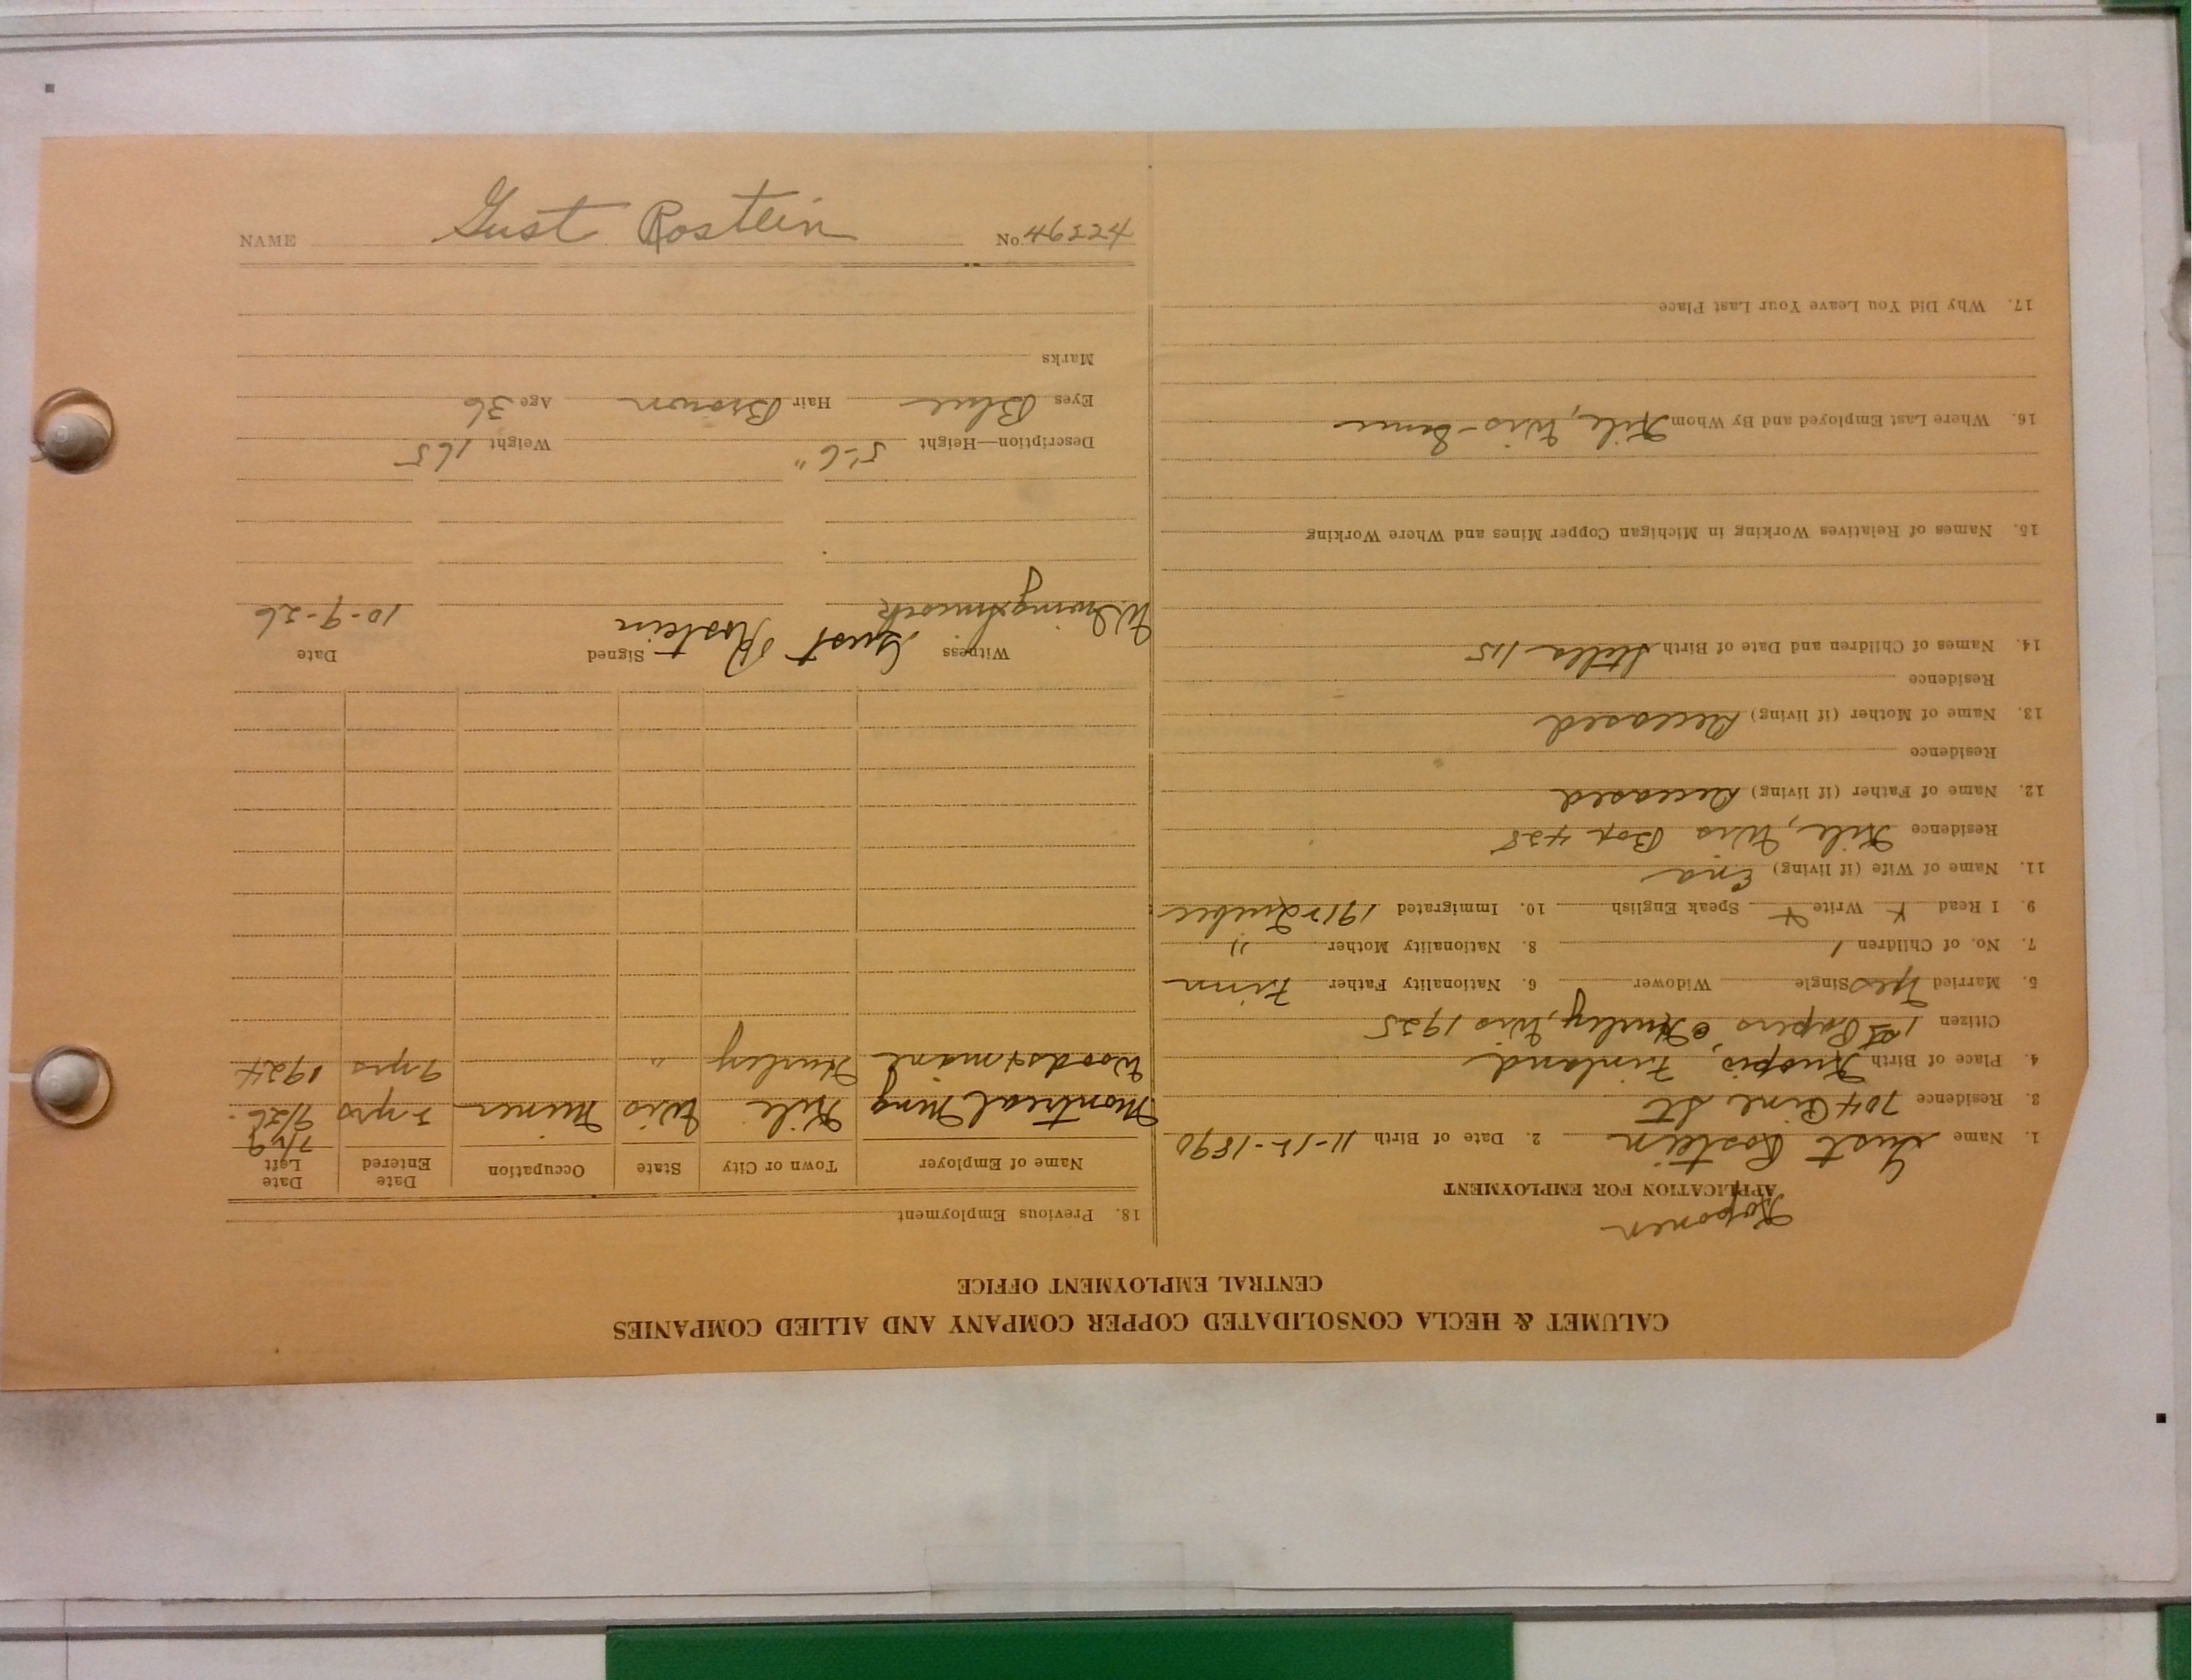 CALUMET & HECLA CONSOLIDATED COPPER COMPANY AND ALLIED COMPANIES
CENTRAL EMPLOYMENT OFFICE
Koponen
APPLICATION FOR EMPLOYMENT
1. Name Gust Rostein 2. Date of Birth 11-12-1890
3. Residence 704 Pine St
4. Place of Birth Kuopio, Finland
Citizen 1st Papers @ Hurley, Wis 1925
5. Married Yes Single Widower 6. Nationality Father Finn
7. No. of Children 1 8. Nationality Mother "
9. I Read x Write x Speak English 10. Immigrated 1912 Quebec
11. Name of Wife (if living) Ena
Residence Kile, Wis Box 428
12. Name of Father (if living) Deceased
Residence
13. Name of Mother (if living) Deceased
Residence
14. Names of Children and Date of Birth Stella 1 15
15. Names of Relatives Working in Michigan Copper Mines and Where Working
16. Where Last Employed and By Whom Kile, Wis - Same
17. Why Did You Leave Your Last Place
18. Previous Employment
Name of Employer Town or City State Occupation Date Entered Date Left
Montreal Mng Kile Wis Miner 2 yrs 9/26.
Woods & mine Hurley " 9 yrs 1924
Witness Signed Date
Gust Rostein 10-9-26
Description—Height 5'-6" Weight 165
Eyes Blue Hair Brown Age 36
Marks
NAME Gust Rostein No. 46224